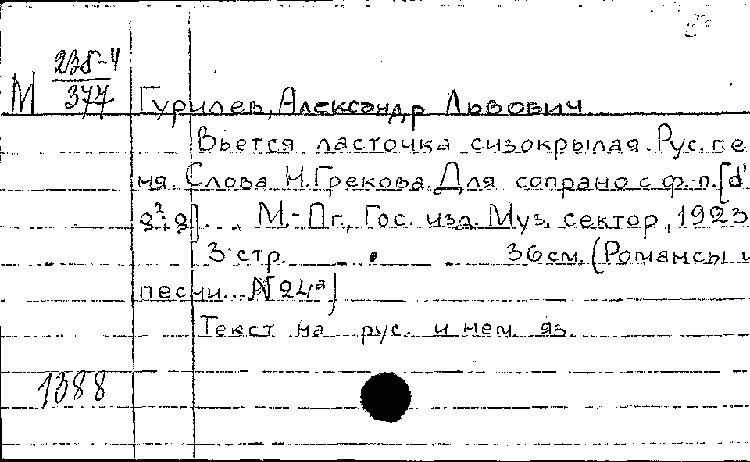 М 235-4
377
Гурилев, Александр Львович.
Вьется ласточка сизокрылая. Рус. пе
ня. Слова Н. Грекова. Для сопрано с ф.-п. [d'
М.-Пг., Гос. изд. Муз. сектор, 1923
3 стр. 36 см. (Романсы и
песни. № 24а)
Текст на рус. и нем. яз.
1088